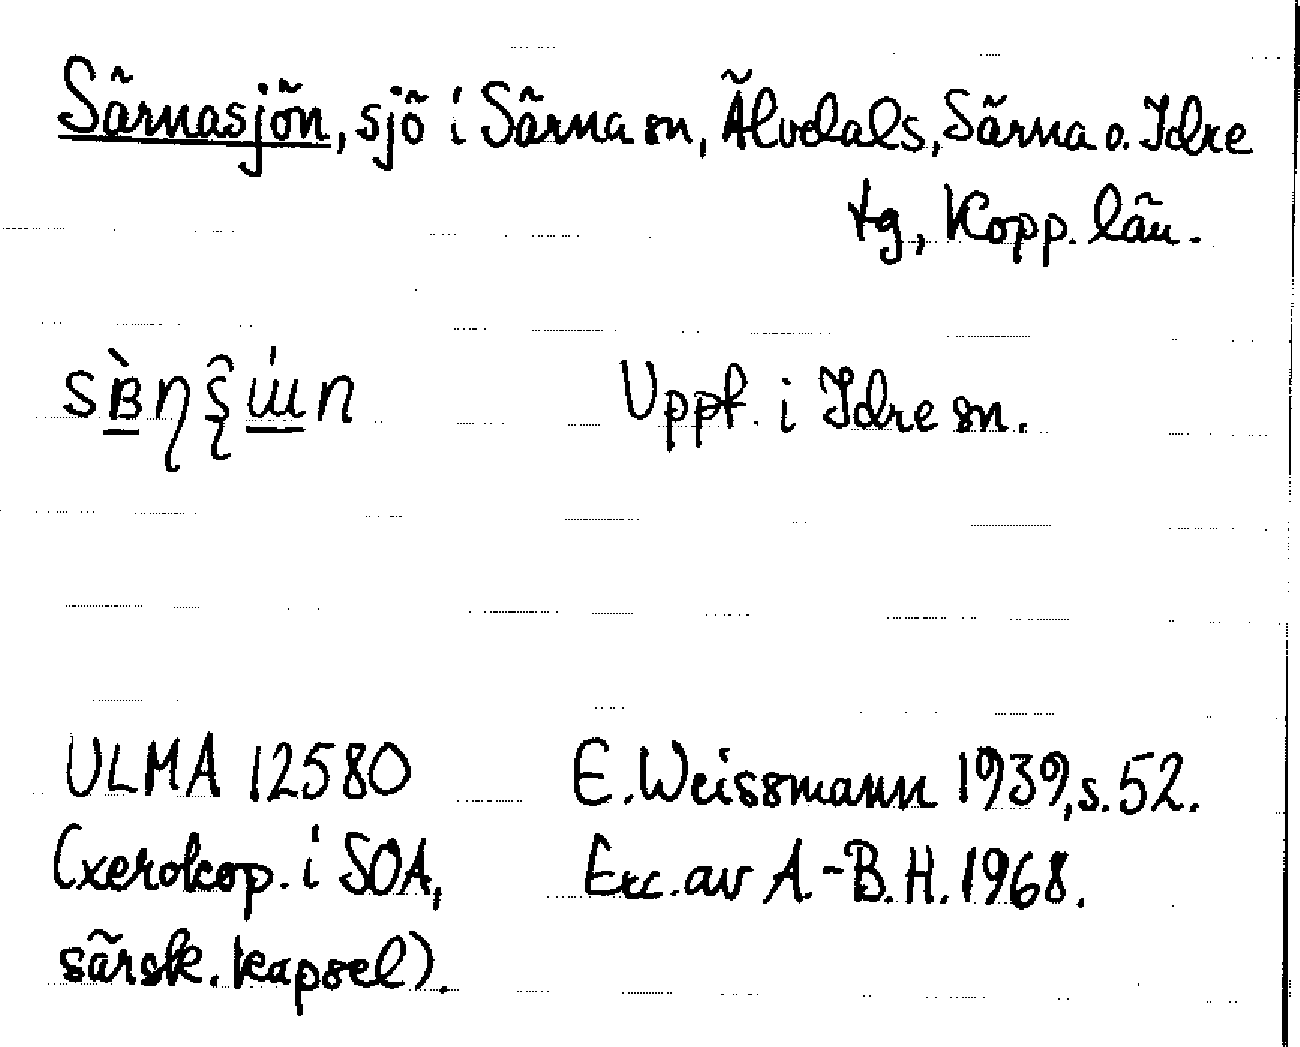 Särnasjön, sjö i Särna sn, Älvdals, Särna o. Idre
tg, Kopp. län.
Uppt. i Idre sn.
ULMA 12580 E. Weissmann 1939, s. 52.
(xerokop. i SOA, Exc. av A.-B. H. 1968.
särsk. kapsel).